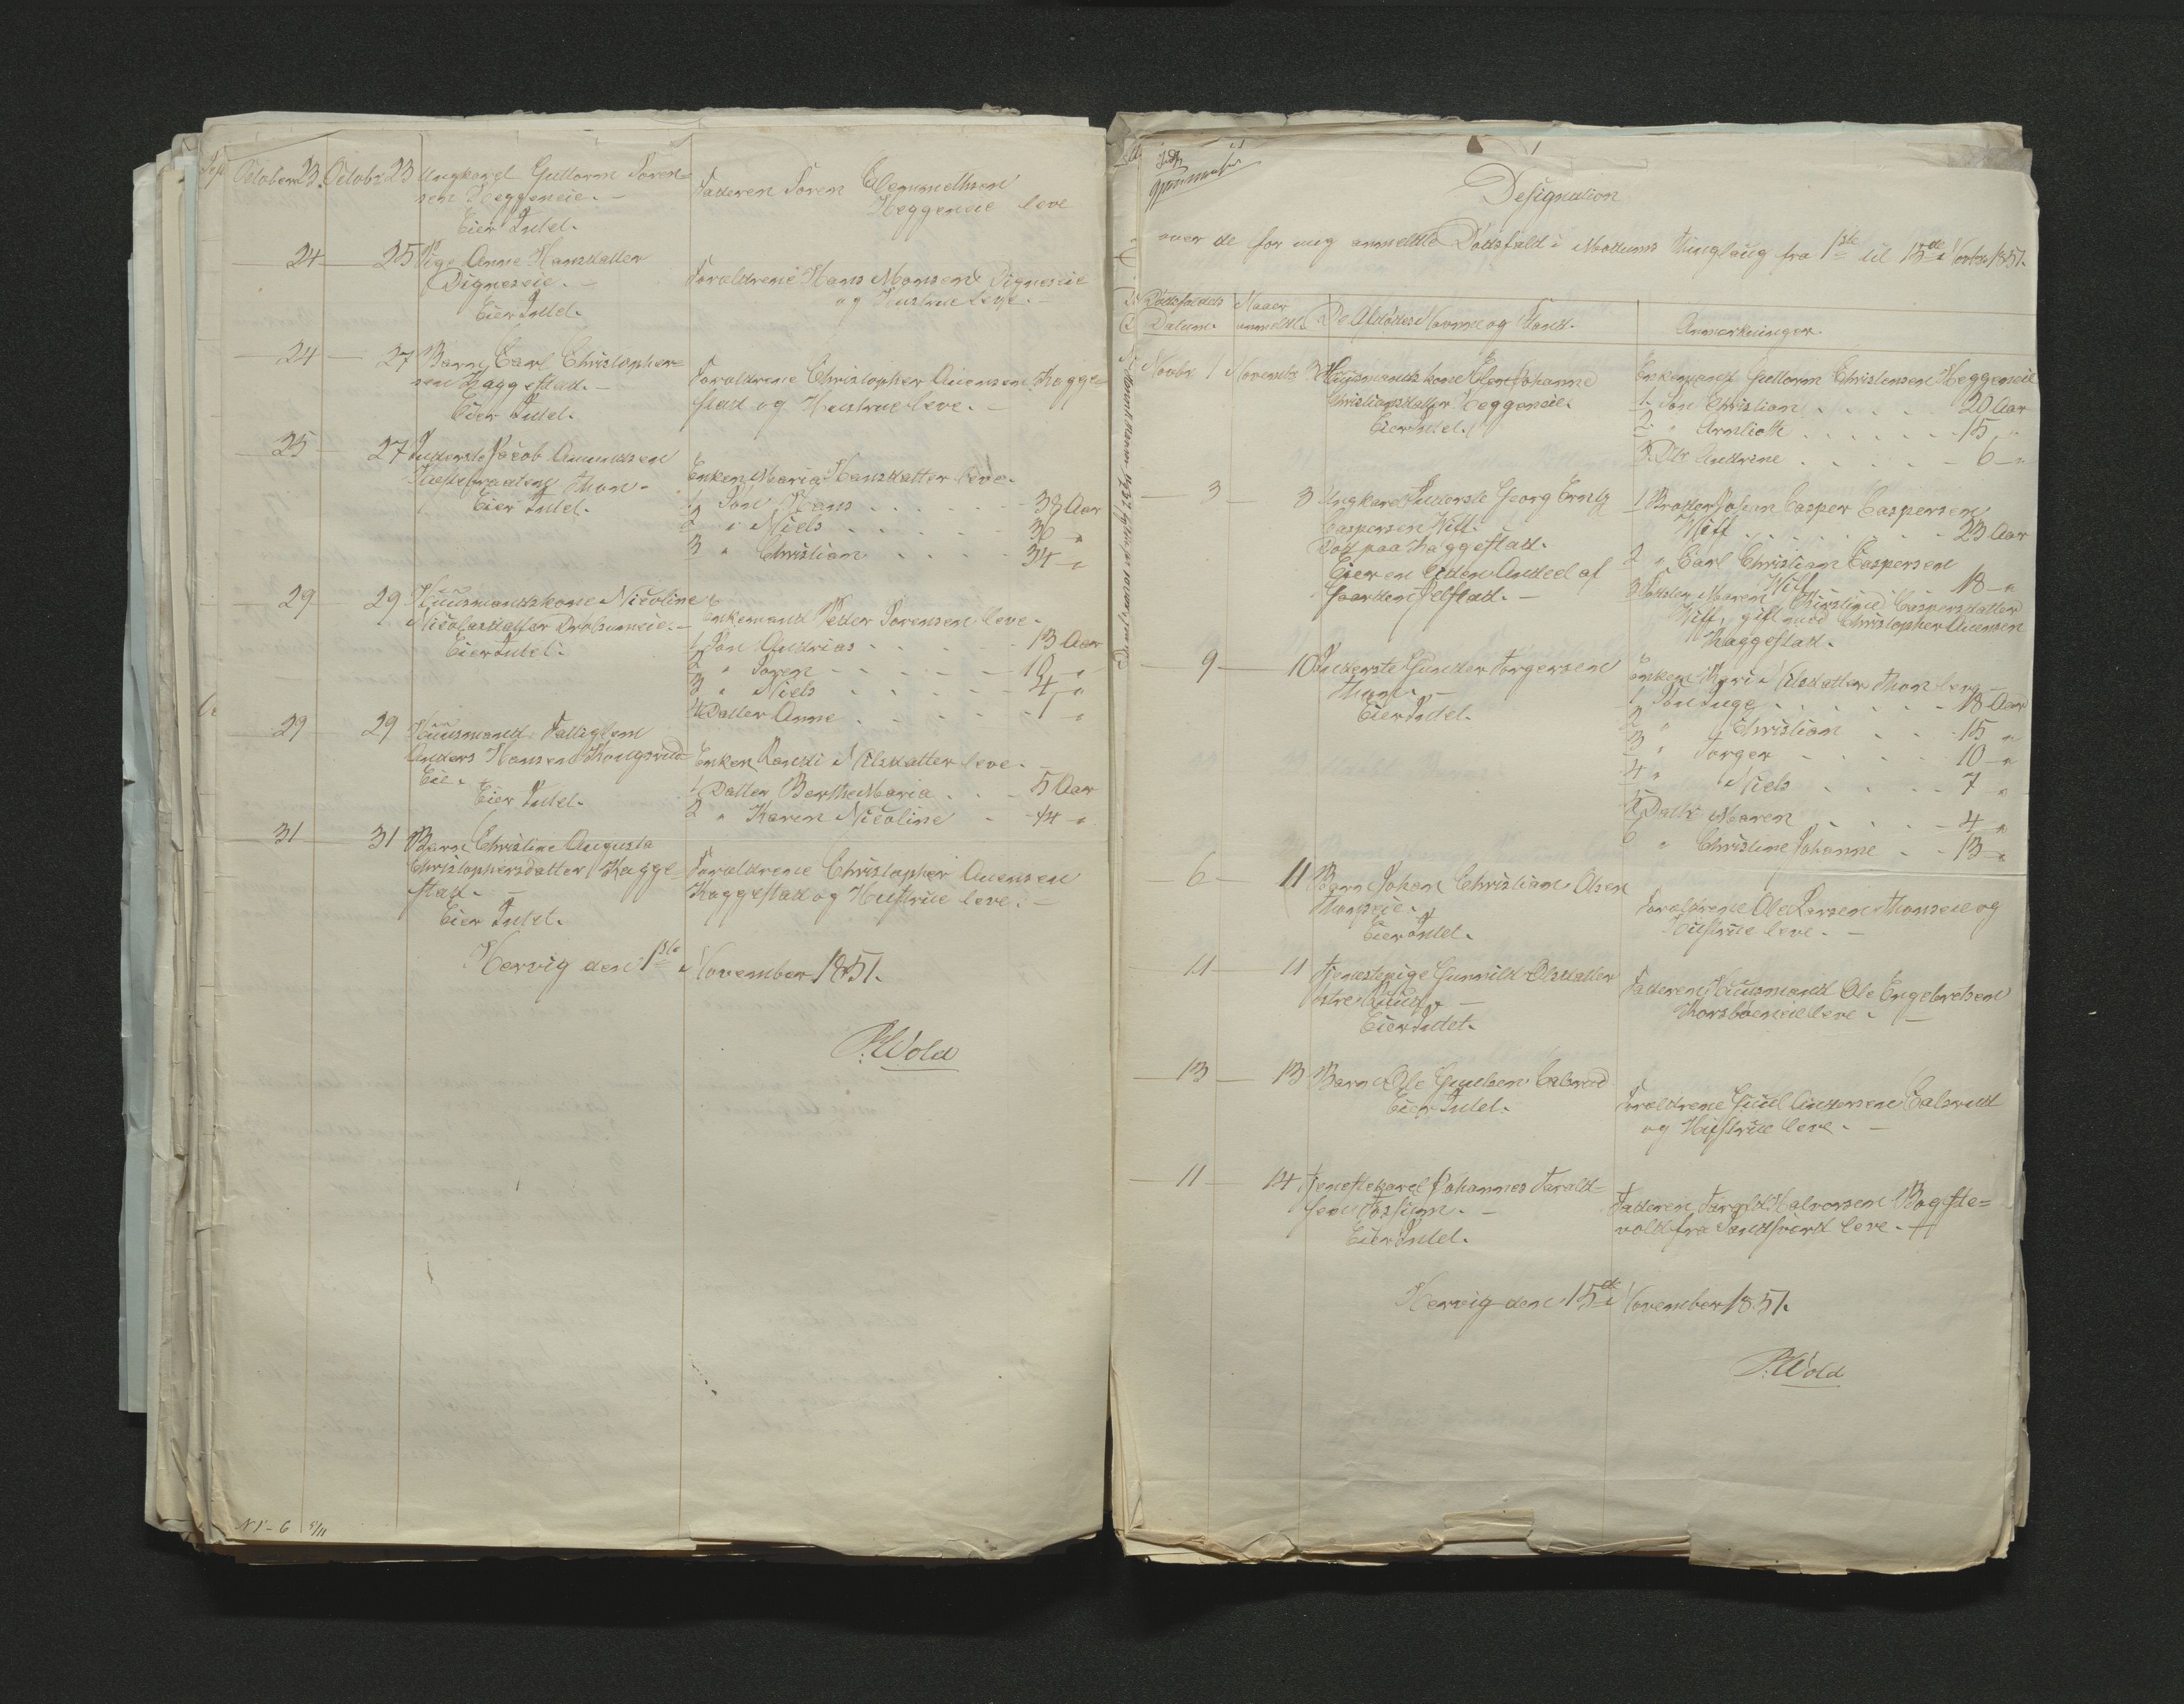 October 23. Octobr 23 Ungkarl Guttorm Søren=
sen Heggeneie. —
Eier Intet.
Faderen Søren Clemmethsen
Heggeneie leve
24 — 25 Pige Anne Hansdatter
Digneseie. —
Eier Intet.
Forældrene Hans Monsen Digneseie
og Hustrue leve. —
24 — 27 Barn Carl Christopher=
sen Kaggestad. —
Eier Intet.
Forældrene Christopher Auensen Kagge=
stad og Hustrue leve. —
25 — 27 Inderste Jacob Amundsen
Thon.
Eier Intet.
Enken Maria Hansdatter leve.
1 Søn Hans . . . . . 38 Aar
2 " Niels . . . . . 36 "
3 " Christian . . . . 34 "
29 29 Huusmandskone Nicoline
Nicolasdatter
Eier Intet.
Enkemand Peder Sørensen leve.
1 Søn Andrias . . . . 13 Aar
2 " Søren . . . . 10 "
3 " Niels . . . . 4 "
4 Datter Anne . . . . 1 "
29 29 Huusmand Fattiglem
Anders Hansen Kongsrud
Eie.
Eier Intet.
Enken Randi Nilsdatter leve. —
1 Datter Berthe Maria . . . 5 Aar
2 " Karen Nicoline . 14 "
31 31 Barn Christine Augusta
Christophersdatter Kagge=
stad. —
Eier Intet.
Forældrene Christopher Auensen
Kaggestad og Hustrue leve. —
Hervig den 1ste November 1851.
P. Wold
N 1 - 6 5/11
Designation
over de for mig anmeldte Dødsfald i Modums Thinglaug fra 1ste til 15de Novbr 1851.
Dødsfaldets
Datum.
Naar
anmeldt.
De Afdødes Navne og Stand.
Anmærkninger.
Novbr 1 Novembr 3 Huusmandskone Olea Johanne
Christiansdatter Heggeneie.
Eier Intet.
Enkemand Guttorm Christensen Heggeneie
1. Søn Christian . . . . 20 Aar
2. " . . . . . 15 "
3. Dttr Andrine . . . . 6 "
3 — 3 Ungkarl Inderste Georg Ernst
Caspersen Wiff.
Død paa Kaggestad.
Eier en liden Andeel af
Gaarden
1 Broder Johan Casper Caspersen
Wiff . . . . . 23 Aar
2 " Carl Christian Caspersen
Wiff 18 "
3 Søster Maren Kirstine Caspersdatter
Wiff, gift med Christopher Auensen
Kaggestad.
9 — 10 Inderste Gunder Torgersen
Thon. —
Eier Intet.
Enken Kari Nilsdatter Thon leve —
1 Søn Inge . . . . . 18 Aar
2 " Christian . . 15 "
3 " Torger . . . . 10 "
4 " Niels . . . . 7 "
5 Dattr Maren . . . . 4 "
6 " Christine Johanne . . 13 "
6 — 11 Barn Johan Christian Olsen
Thonseie.
Eier Intet.
Forældrene Ole Larsen Thonseie og
Hustrue leve. —
11 — 11 Tjenestepige Gunnild Olsdatter
Østre Ruud —
Eier Intet.
Faderen Huusmand Ole Engebretsen
Korsbøeneie leve. —
13 — 13 Barn Ole Guulsen Calsrud
Eier Intet.
Forældrene Guul Andersen Calsrud
og Hustrue leve. —
11 — 14 Tjenestekarl Johannes Tarald=
sen Fossum. —
Eier Intet.
Faderen Tarald Halvorsen Bagste=
vold fra Sandsværd leve.
Hervig den 15de November 1851.
P. Wold